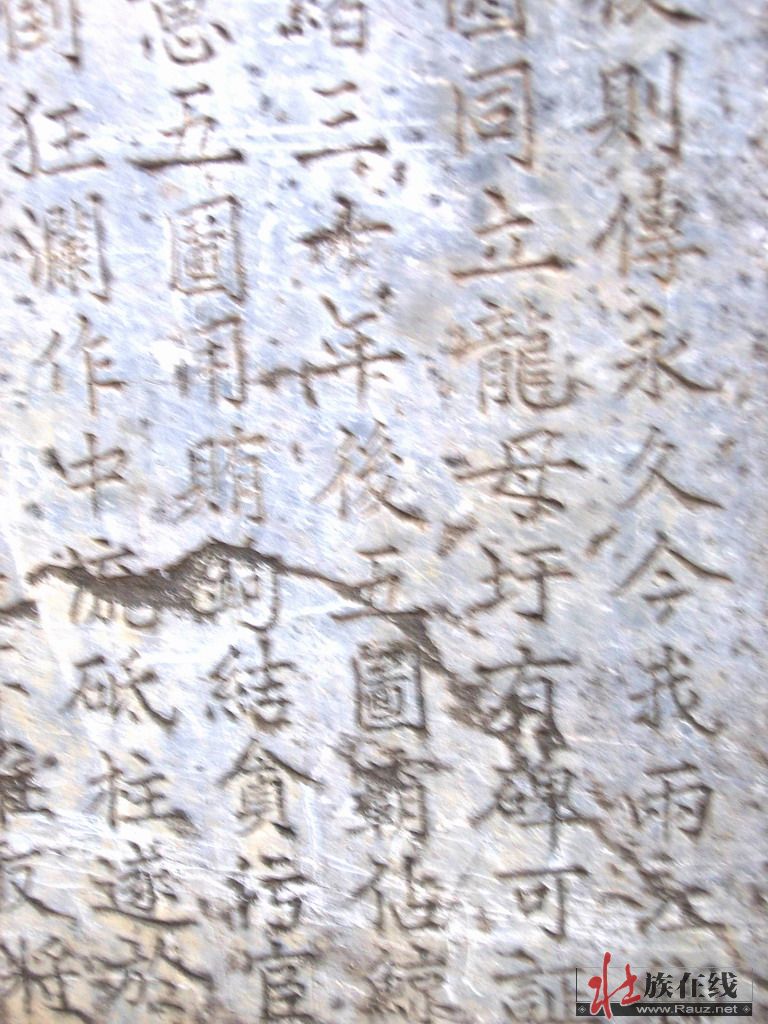 則傳永久今我兩
圖同立龍母圩有碑可
三十年後五圖霸佔
五圖用賄結貪污官
狂瀾作中流砥柱遂於
壯族在线
www.Rauz.net